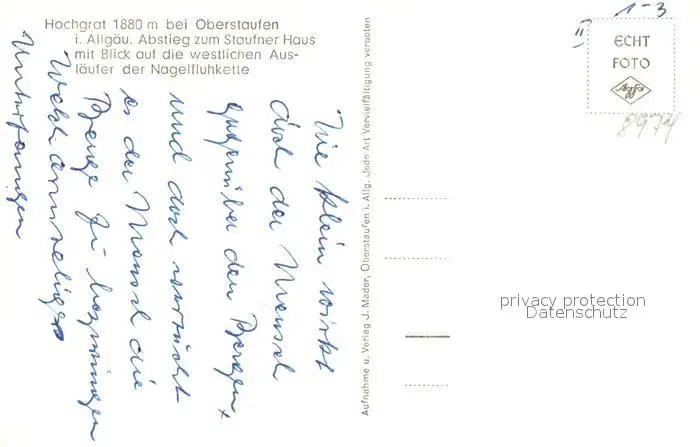 Hochgrat 1880 m bei Oberstaufen
i. Allgäu. Abstieg zum Staufner Haus
mit Blick auf die westlichen Aus-
läufer der Nagelfluhkette
Wie klein wirkt
doch der Mensch
gegenüber den Bergen,
und doch versucht
es der Mensch die
Berge zu bezwingen
Welch armseliges
Unterfangen
Aufnahme u. Verlag J. Mader, Oberstaufen i. Allg. Jede Art Vervielfältigung verboten
II 1-3
ECHT
FOTO
Agfa
8974
privacy protection
Datenschutz